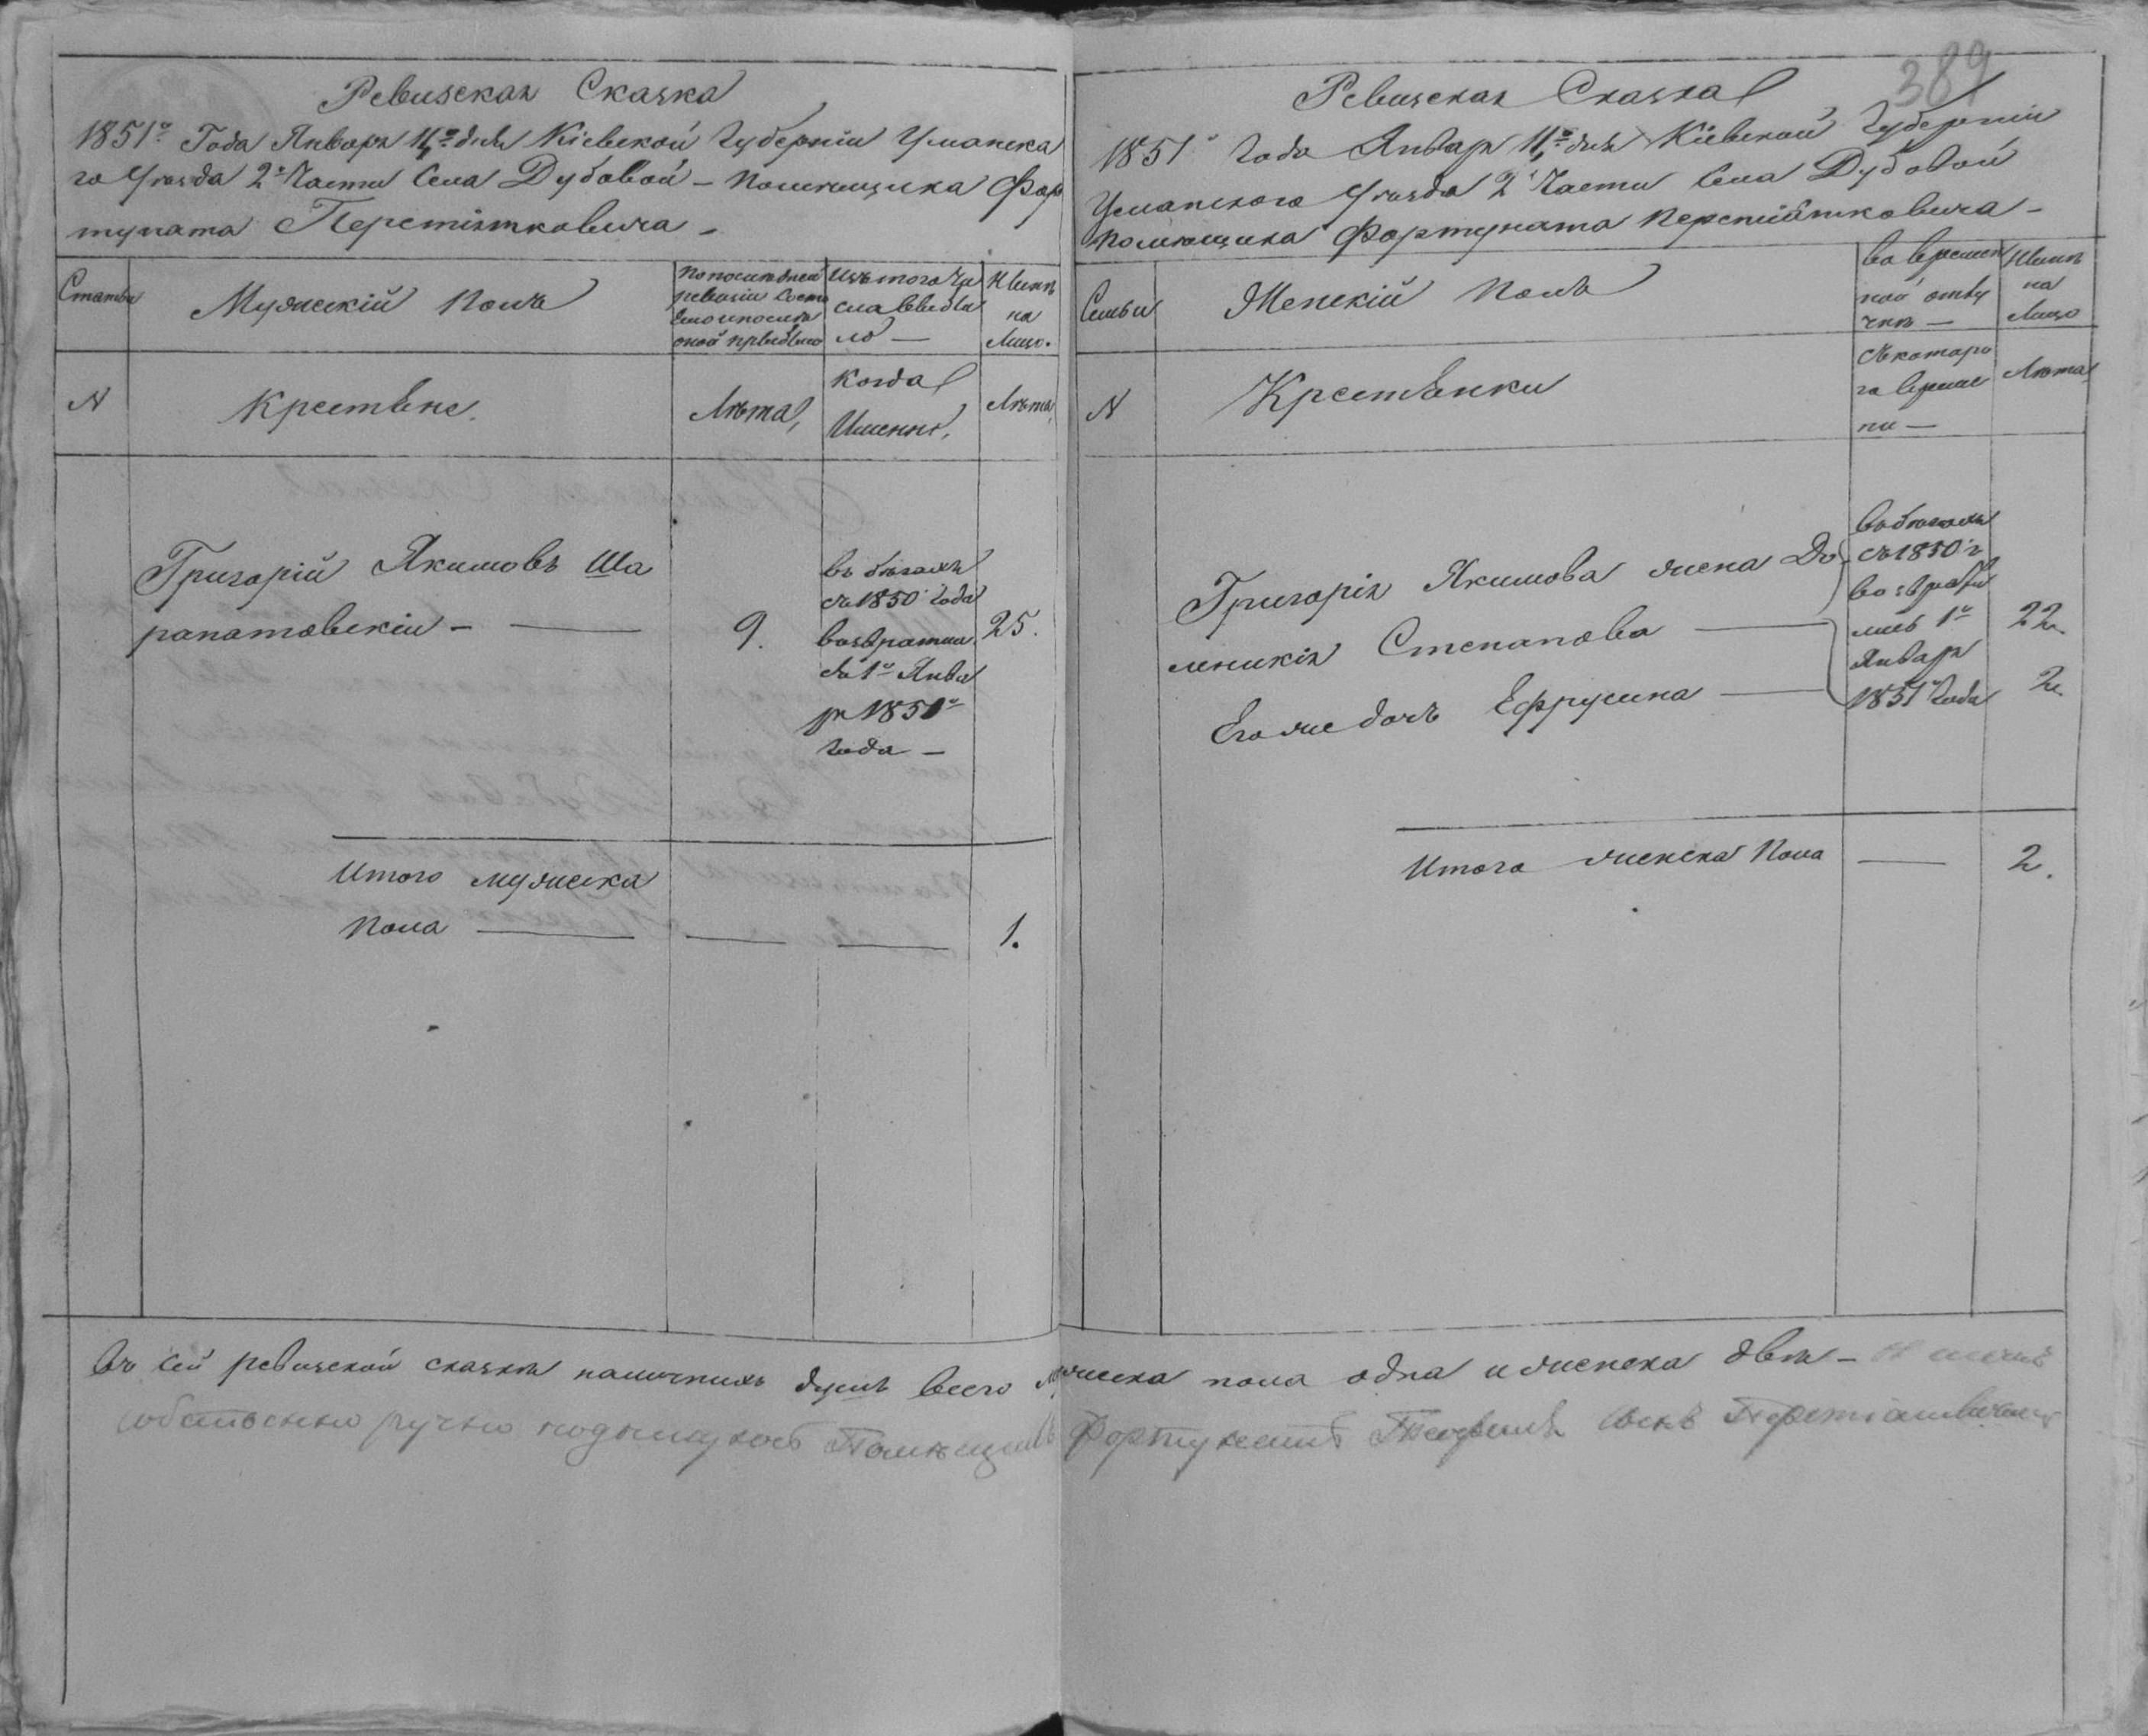 Ревизская Сказка
1851го Года Января 11го дня Кіевской Губерніи Уманска
го Уѣзда 2й Части Села Дубовой — Помѣщика Фор
туната Перетіятковича —
Статьи
Мужескій Полъ
По послѣдней
ревизіи Состо
яло и послѣ
оной прибыло
Изъ того чи
сла выбы
ло —
Нынѣ
на
Лицо.
N
Крестьяне.
Лѣта,
Когда
Именно,
Лѣта,
Григорій Якимовъ Ша
рапатовскій — —
9.
въ бѣгахъ
съ 1850 Года
возвратил.
съ 1го Янва
ря 1851го
года —
25.
Итого мужеска
Пола — — —
1.
389
Ревизская Сказка
1851 Года Январ 11го дня Кіевской Губерніи
Уманского Уѣзда 2й Части Села Дубовой
Помѣщика Фортуната Перетіятковича —
Семьи
Женскій Полъ
Во времен
ной отлу
чкѣ —
Нынѣ
на
Лицо
N
Крестьянки
Съ котора
го време
ни —
Лѣта
Григорія Якимова жена До
меникія Степанова —
Его же дочь Ефрусина —
въ бѣгахъ
съ 1850 г
возврати
лись 1го
Январ
1851 Года
22.
2.
Итого женска Пола —
2.
Въ сей ревизской сказкѣ наличныхъ душъ всего мужеска пола одна и женска двѣ —
собственно ручно подписуюсь Помѣщикъ Фортунатъ